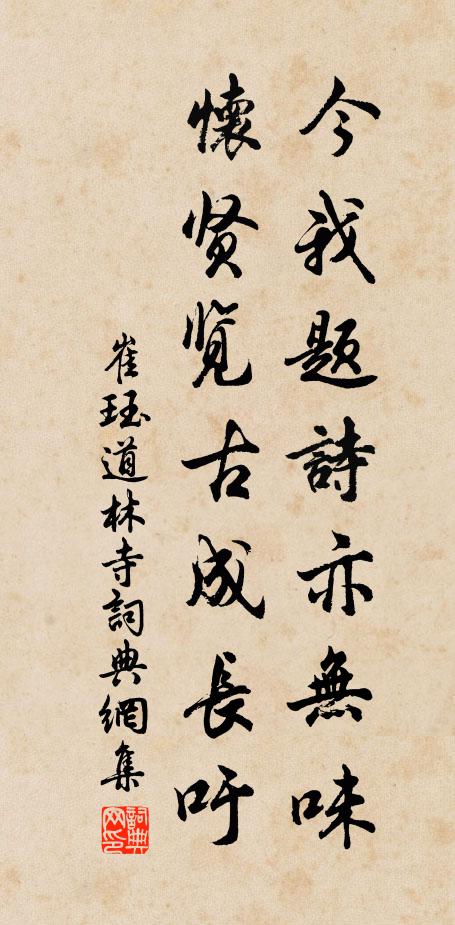 今我题詩亦無味
懷贤览古成長吁
崔珏道林寺詞典網集
詞典网印